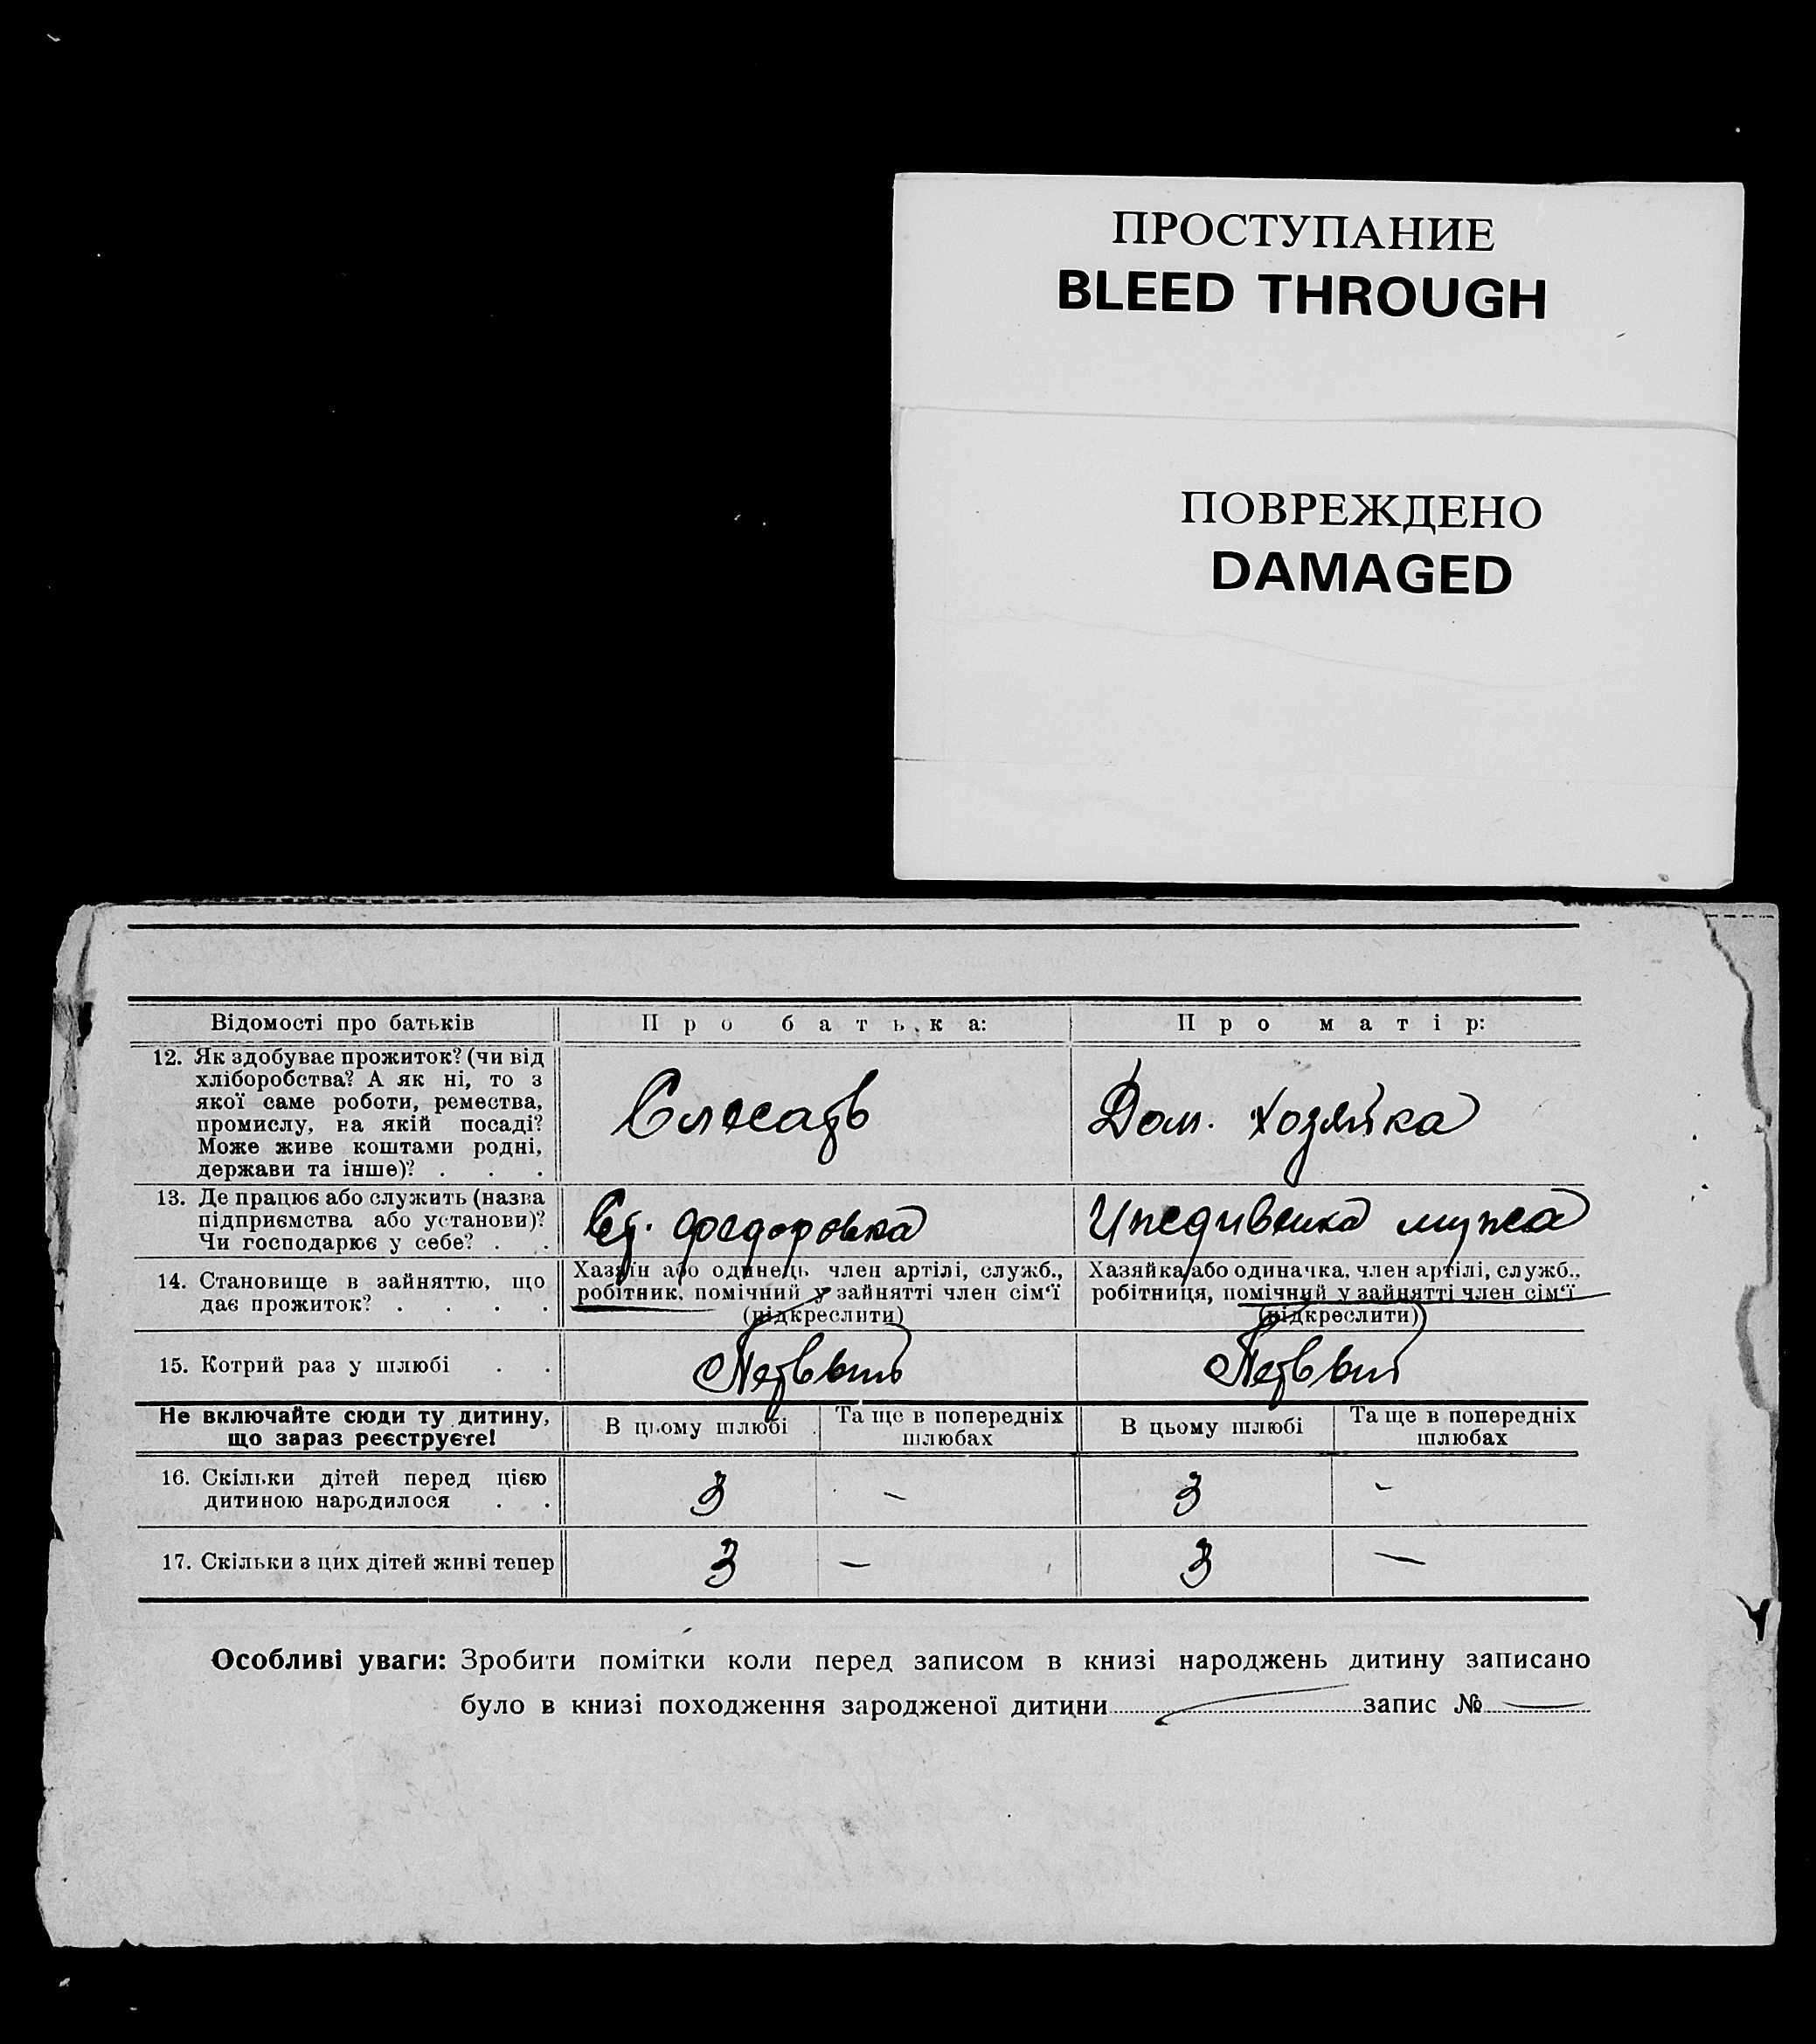 ПРОСТУПАНИЕ
BLEED THROUGH
ПОВРЕЖДЕНО
DAMAGED
Відомості про батьків
Про батька:
Про матір:
12. Як здобуває прожиток? (чи від
хліборобства? А як ні, то з
якої саме роботи, ремества,
промислу, на якій посаді?
Може живе коштами родні,
держави та інше)? . . .
Слесарь
Дом. хозяйка
13. Де працює або служить (назва
підприємства або установи)?
Чи господарює у себе? . .
Ст. Федоровка
Иждивенка мужа
14. Становище в зайняттю, що
дає прожиток? . . . .
Хазяїн або одинець член артілі, служб.,
робітник, помічний у зайнятті член сім'ї
(підкреслити)
Хазяйка або одиначка, член артілі, служб.,
робітниця, помічний у зайнятті член сім'ї
(підкреслити)
15. Котрий раз у шлюбі . .
Первый
Первый
Не включайте сюди ту дитину,
що зараз реєструєте!
В цьому шлюбі
Та ще в попередніх
шлюбах
В цьому шлюбі
Та ще в попередніх
шлюбах
16. Скільки дітей перед цією
дитиною народилося . .
3 - 3 -
17. Скільки з цих дітей живі тепер
3 — 3 —
Особливі уваги: Зробити помітки коли перед записом в книзі народжень дитину записано
було в книзі походження зародженої дитини — запис № —